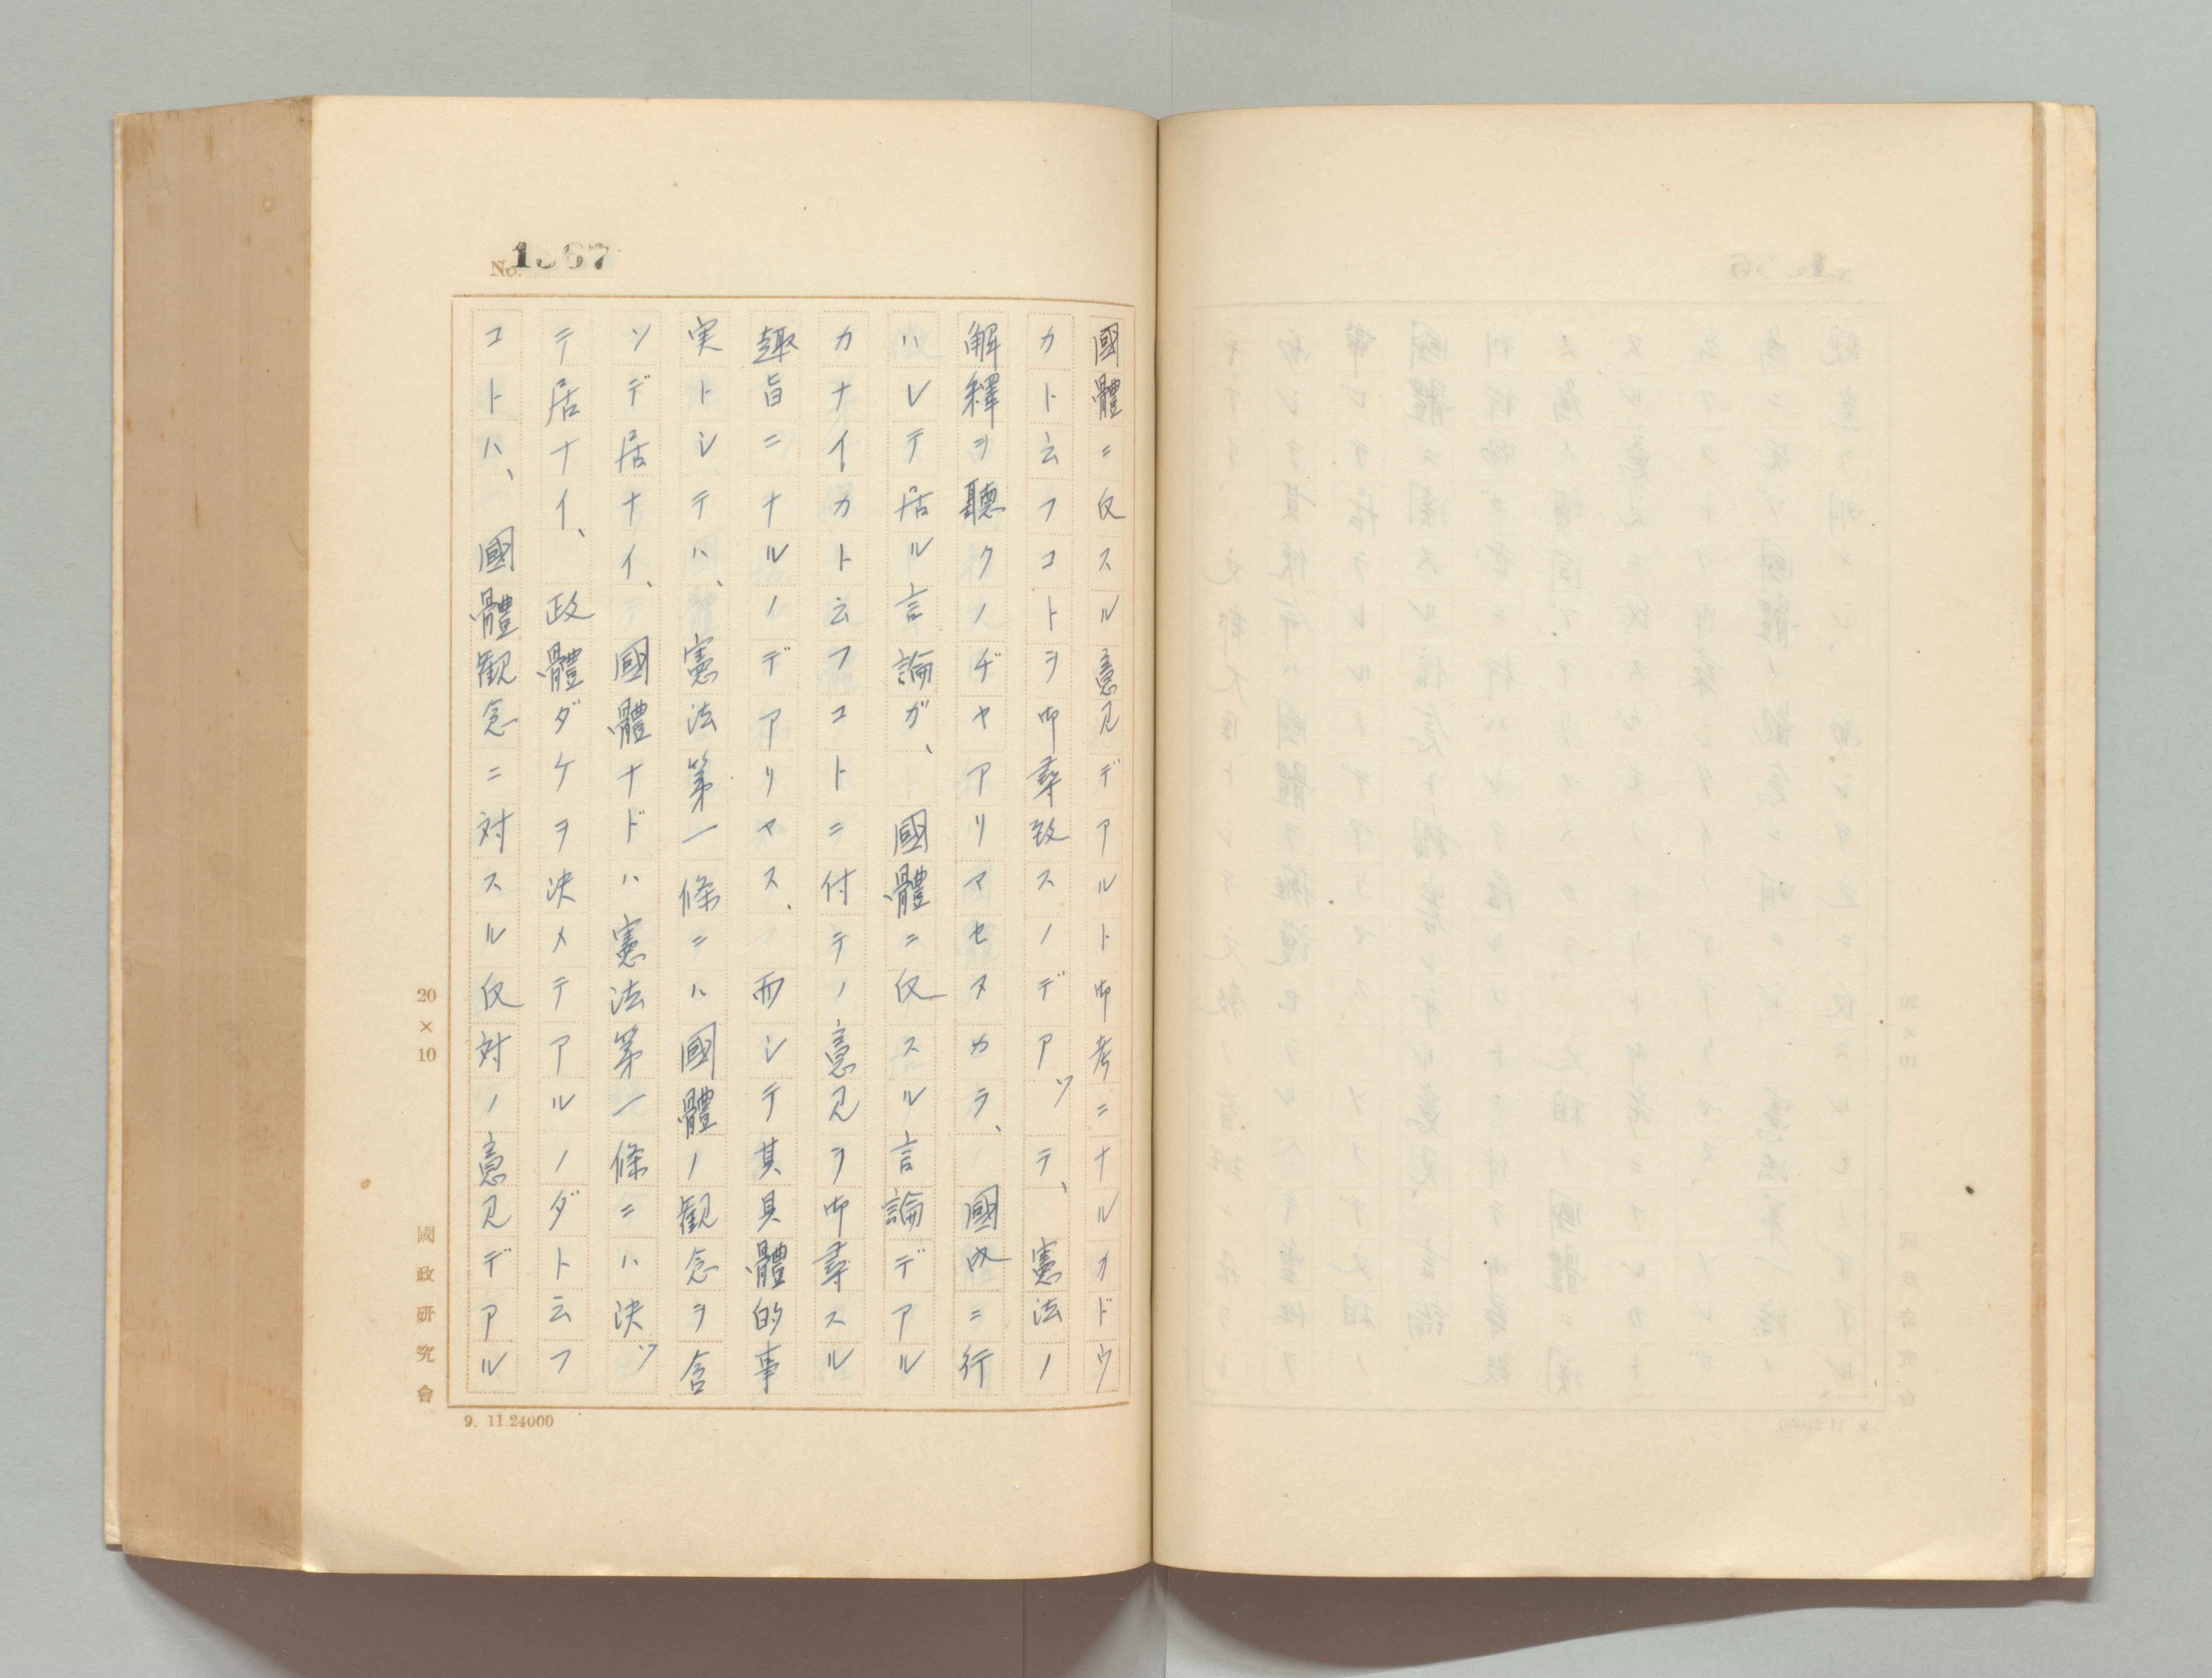 No. 1367
國體ニ反スル意見デアルト御考ニナルカドウ
カト云フコトヲ御尋致スノデアッテ、憲法ノ
解釋ヲ聽クノヂヤアリマセヌカラ、國内ニ行
ハレテ居ル言論ガ、國體ニ反スル言論デアル
カナイカト云フコトニ付テノ意見ヲ御尋スル
趣旨ニナルノデアリマス、而シテ其具體的事
実トシテハ、憲法第一條ニハ國體ノ観念ヲ含
ンデ居ナイ、國體ナドハ憲法第一條ニハ決ッ
テ居ナイ、政體ダケヲ決メテアルノダト云フ
コトハ、國體観念ニ対スル反対ノ意見デアル
20×10
國政研究會
9. 11 24000